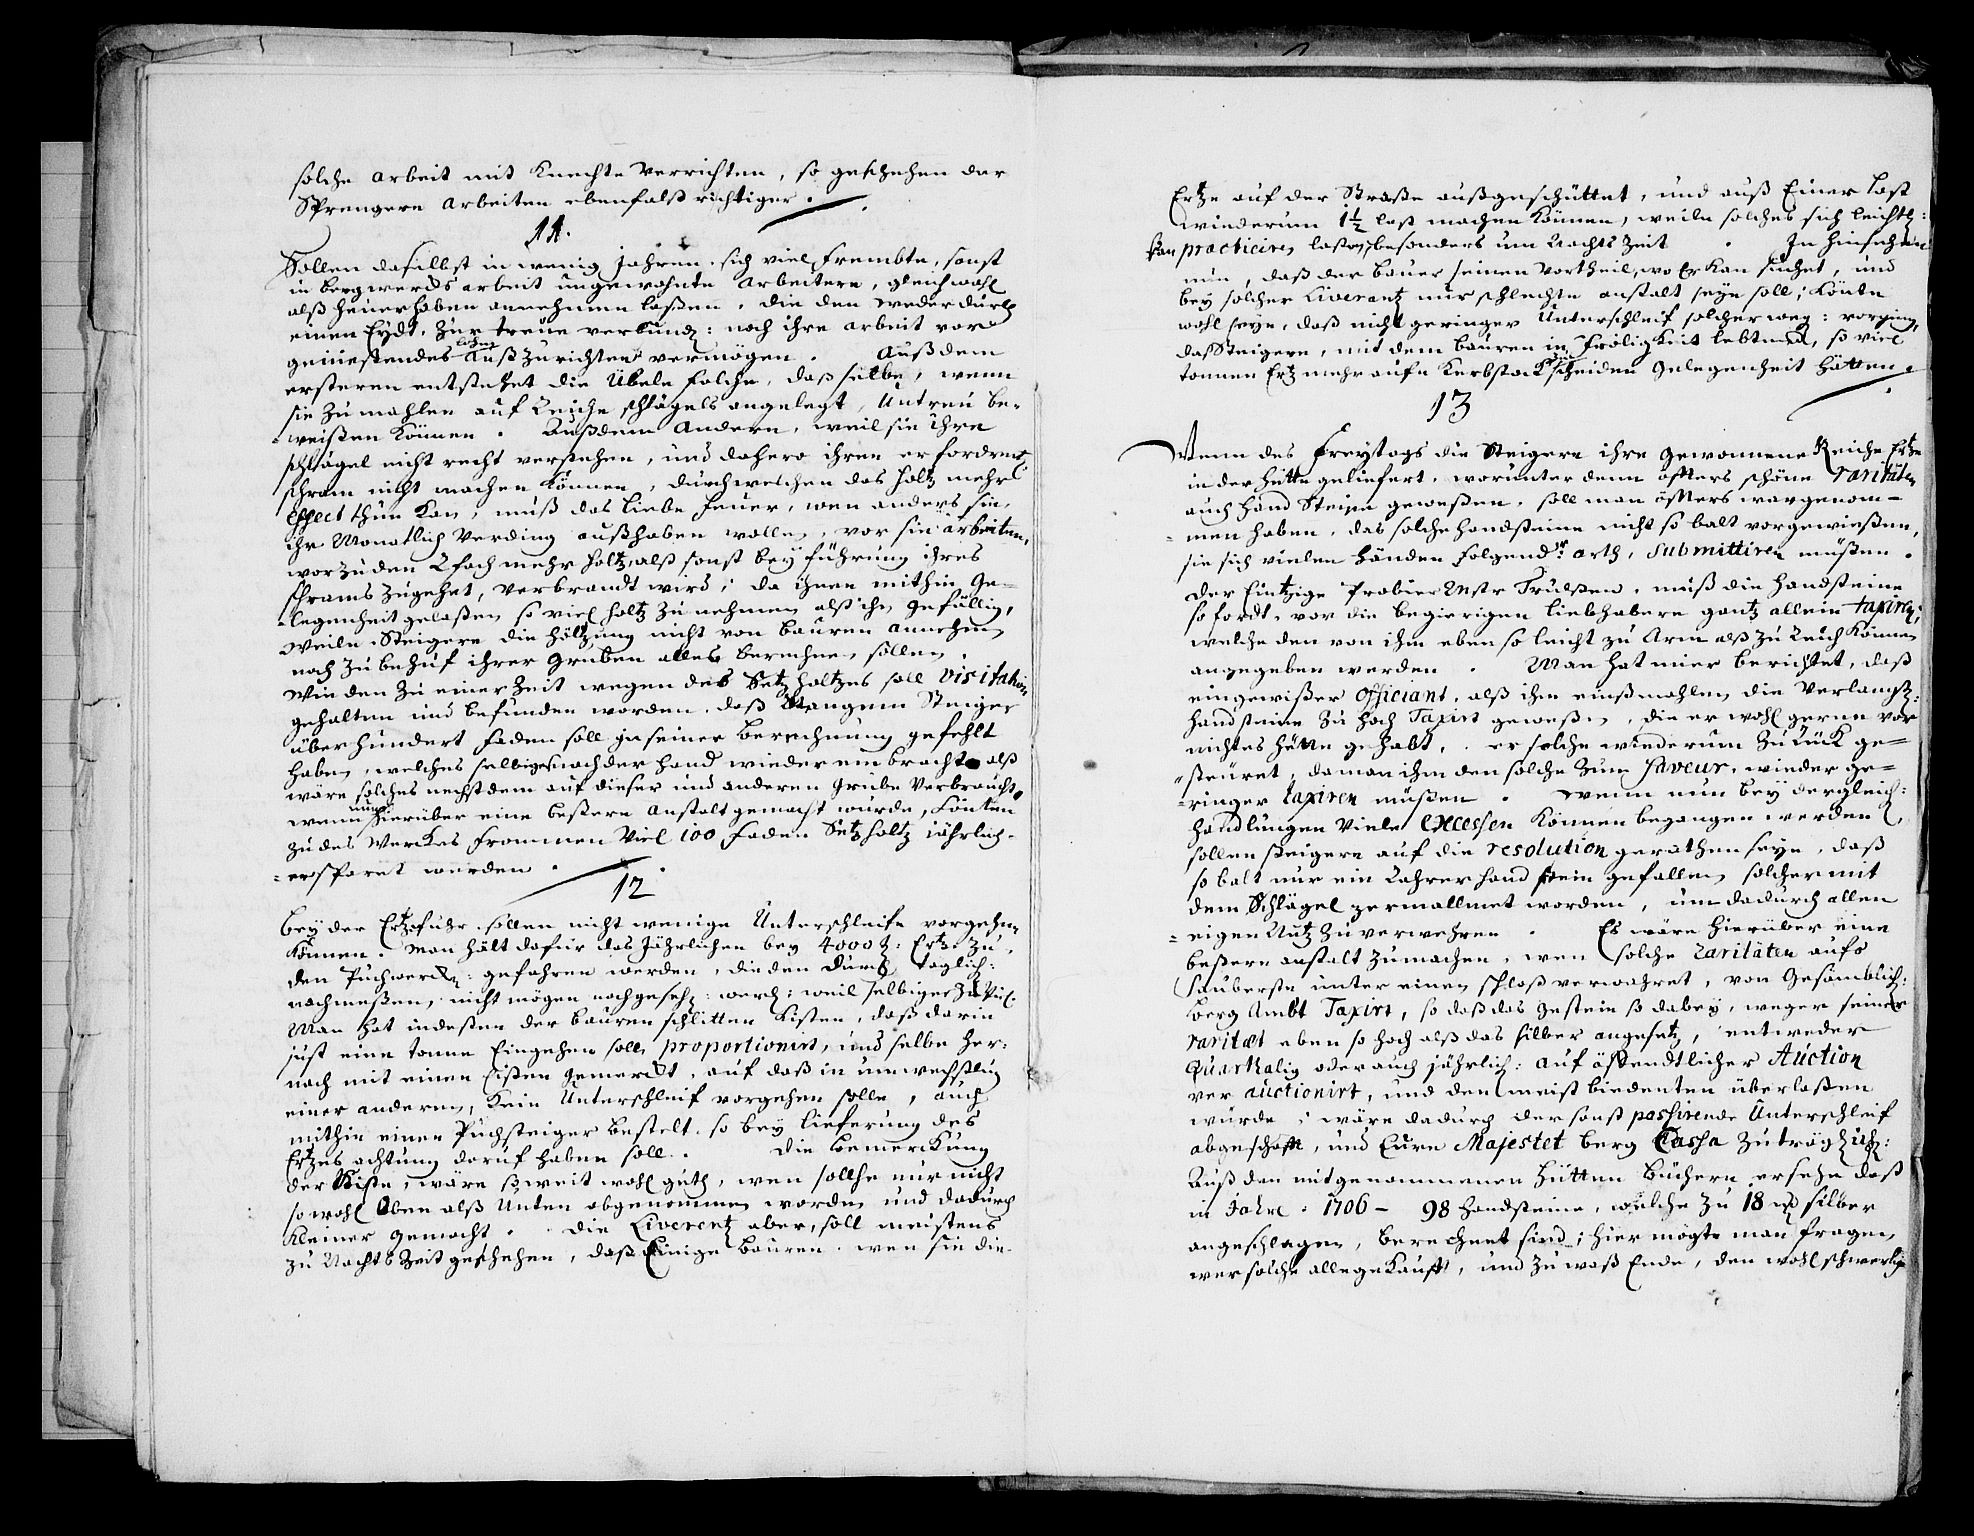 solche Arbeit mit Knechte verrichten, so geschehen der
Sprengern Arbeiten ebenfalß richtiger.
11.
Sollen daselbst in wenig Jahren sich viel frembte, sonst
in bergwercks arbeit ungewohnte Arbeitere, gleichwohl
alß heuerhaben annehmen laßen, die den weder durch
einen Eydt, zur treue verbund: noch ihre arbeit vor
geniestendes lohn außzurichten vermögen. Außdem
ersteren entstehet die Übele folche, daß selbe, wenn
sie zumahlen auf Reiche schlägels angelegt, Untreu be-
weißen können. Außdem Andern, weil sie ihre
schlägel nicht recht verstehen, und dahero ihren erfordrent
schram nicht machen können, durch welchen das holtz mehr
effect thun kan, muß das liebe feuer, wen anders sie
ihr Monatlich Verding außhaben wollen, vor sie arbeiten,
worzu den 2fach mehr holtz, alß sonst bey führung ihres
schrams zugehet, verbrandt wird; da ihnen mithin Ge-
legenheit gelaßen so viel holtz zu nehmen alß ihn gefällig,
weiln Steigere die höltzung nicht von bauren annehmen
noch zu behuf ihrer gruben alles berechnen sollen.
Wie den zu einer Zeit wegen des Setzholtzes soll visitation
gehalten und befunden worden, daß Steiger
über hundert faden soll in seiner berechnung gefehlt
haben, welches selbiges nach der hand wieder einbracht alß
wäre solches nechst dem auf dieser und anderen Grube verbraucht.
wenn nun hierüber eine beßere anstalt gemacht würde, könten
zu des Werckes frommen viel 100 faden Setzholtz jährlich
erspart werden.
12
Bey der Ertzfuhr sollen nicht wenige Unterschleife vorgehen
können. Man hält dafür das Jährlichen bey 4000 t: Ertz zu
den Puchwerck: gefahren werden, die den durch täglich:
nachmeßen, nicht mögen nachgeseh: werd: weil selbiges zu viel.
Man hat indeßen der bauren schlitten Kisten, daß darin
just eine tonne Eingehen soll, proportionirt, und selbe her-
nach mit einen Eißen gemerckt, auf daß in umwechslung
einer anderen, kein Unterschleif vorgehen solle, auch
mithin einen Puchsteiger bestelt, so bey lieferung des
Ertzes achtung daruf haben soll. Die bemerckung
der Kiste, wäre so weit wohl guth, wen solche nur nicht
so wohl Oben alß Unten abgenommen worden und dadurch
kleiner gemacht. Die Liverentz aber, soll meistens
zu Nachts Zeit geschehen, daß Einige bauren, wen sie die
Ertze auf der Straße außgeschüttet, und auß Einer last
wiederum 1½ last machen können, weiln solches sich leichtl:
kan practiciren laßen, besonders um Nachts Zeit. In hinsehen
nun, daß der bauer seinen Vortheil, wo Er kan suchet, und
bey solcher Liverantz nur schlechte anstalt seyn soll; könte
wohl seyn, daß nicht geringer Unterschleif solcher weg: vorging,
daß Steigere, mit dem bauren in frölichkeit lebten, so viel
tonnen Ertz mehr aufn Kerbstock zu schneiden gelegenheit hätten.
13
Wenn des Freytags die Steigere ihre gewonnene Reiche Ertze
in der hütte geliefert, worunter denn öffters schöne rariteten
auch hand Steine geweßen, soll man öffters wargenom-
men haben, das solche handsteine nicht so balt vorgewießen,
sie sich vielen händen folgender: arth, submittiren müßen.
Der Eintzige Probier Mstr Trülßen, muß die handsteine
so fordt, vor die begierigen liebhabere gantz allein taxiren,
welche den von ihm eben so leicht zu Arm alß zu Reich können
angegeben werden. Man hat mier berichtet, daß
ein gewißer Officiant, alß ihm einßmahlen die verlangt:
handsteine zu hoch Taxirt geweßen, die er wohl gerne vor
nichtes hätte gehabt, er solche wiederum zurück ge-
steuret, da man ihm den solche zum faveur, wieder ge-
ringer taxiren müßen. Wenn nun bey dergleich:
handlungen viele Excessen können begangen werden,
sollen steigere auf die resolution gerathen seyn, daß
so balt nur ein Rahrer hand stein gefallen, solcher mit
dem Schlägel zermallmet worden, um dadurch allen
eigen Nutz zu verwehren. Es wäre hierüber eine
beßere anstalt zumachen, wen solche Raritäten aufs
sauberste unter einen schloß verwahret, von gesamblich:
berg Ambt Taxirt, so daß das gestein so dabey, wegen seiner
raritæt eben so hoch alß das silber angesetz, entweder
Quarthalig oder auch jährlich: auf öffendtlicher Auction
ver auctionirt, und den meist biedenten überlaßen
würde; wäre dadurch der sonst passirende Unterschleif
abgeschafft, und Eure Majestet berg Cassa zuträglich:
Auß den mitgenommenen hütten büchern ersehe daß
in Jahre 1706 - 98 handsteine, welche zu 18 silber
angeschlagen, berechnet sind; hier mögte man fragen,
wer solche alle gekaufft, und zu waß Ende, den wohl schwerlig